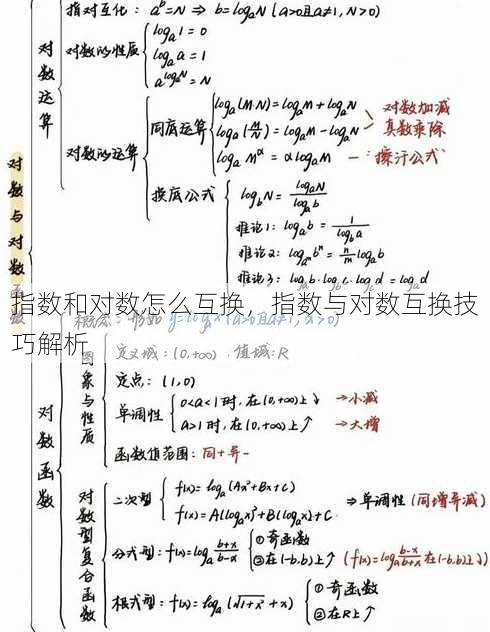 对数与对数函数
对数运算
指对互化: a^b=N ⇒ b=log_a N (a>0且a≠1, N>0)
对数的性质
log_a 1=0
log_a a=1
a^{log_a N}=N
对数的运算
同底运算
log_a (M·N)=log_a M+log_a N
log_a (M/N)=log_a M-log_a N
对数加减
真数乘除
log_a M^α=αlog_a M — 擦汗公式
换底公式
log_b N=log_a N/log_a b
推论1: log_a b=1/log_b a
推论2: log_{a^m} b^n=n/m log_a b
推论3: log_a b·log_b c·log_c d=log_a d
指数和对数怎么互换，指数与对数互换技
巧解析
对数函数
概念: 形如 y=log_a x (a>0且a≠1, x>0)
图象与性质
定义域: (0,+∞) . 值域: R
定点: (1,0)
单调性
0<a<1时, 在(0,+∞)上↓ →小减
a>1时, 在(0,+∞)上↑ →大增
函数值范围: 同+异-
对数型复合函数
二次型
f(x)=log_a (Ax²+Bx+C)
f(x)=A(log_a x)²+B(log_a x)+C
⇒单调性 (同增异减)
分式型: f(x)=log_a b+x/b-x
①奇函数
②在(-b,b)上↑ (f(x)=log_a b-x/b+x 在(-b,b)上↓)
根式型: f(x)=log_a (√1+x² +x)
①奇函数
②在R上↑